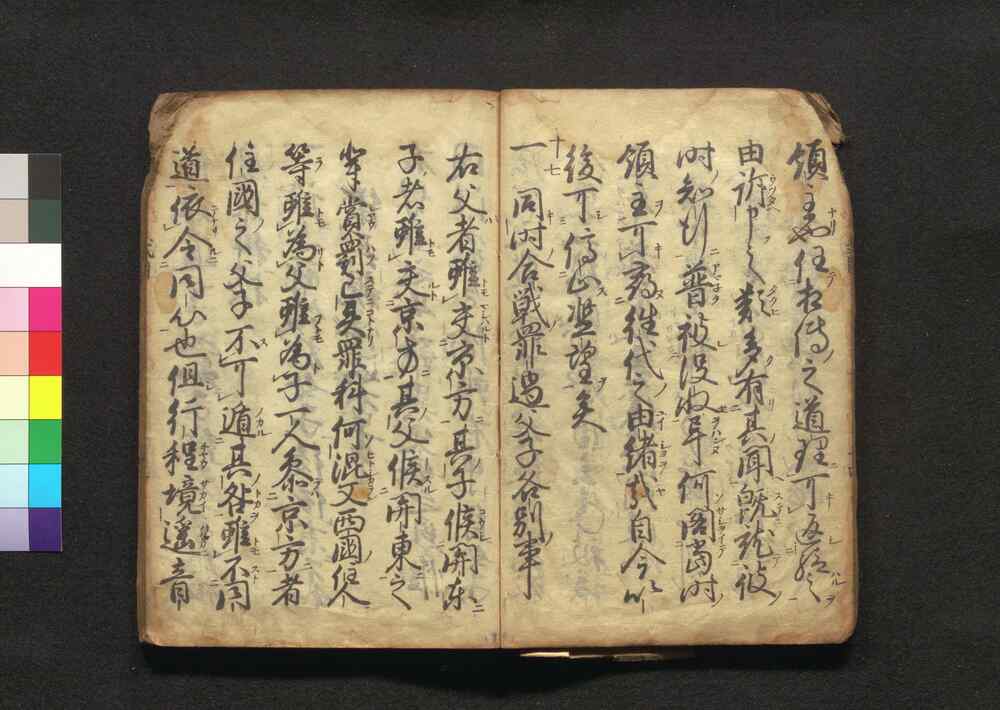 領主也任相傳之道理可返給之
由訴申之類多有其聞既就彼
時知行普被没収畢何閣当時
領主可尋往代之由緒哉自今以
後可停止濫望矣
十七
一 同時合戦罪過父子各別事
右父者雖交京方其子候関東
子者雖交京方其父候関東之
輩賞罰已異罪科何混又西國住人
等雖為父雖為子一人参京方者
住國之父子不可遁其咎雖不同
道依令同心也但行程境遥音